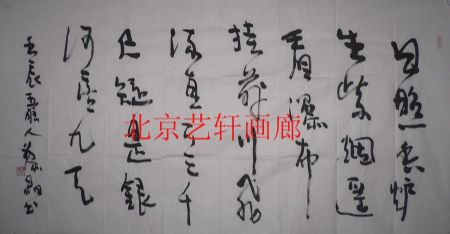 日照香炉
生紫烟遥
看瀑布
挂前川飛
流直下三千
尺疑是銀
河落九天
北京艺轩画廊